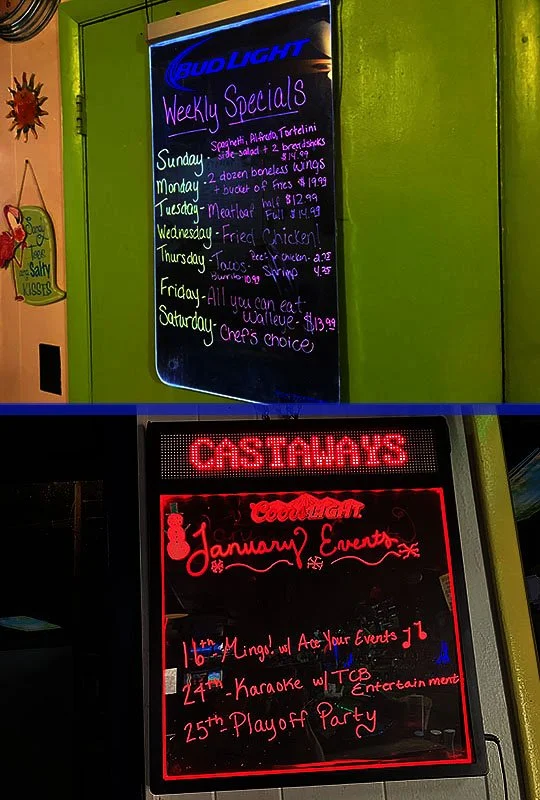 BUD LIGHT
Weekly Specials
Sunday - Spaghetti, Alfredo, Tortelini
side salad + 2 breadsticks
$14.99
Monday - 2 dozen boneless wings
+ bucket of fries $19.99
Tuesday - Meatloaf half $12.99
Full $14.99
Wednesday - Fried Chicken!
Thursday - Tacos - Beef or chicken - 2.75
Burrito 10.99 Shrimp 4.25
Friday - All you can eat
Walleye - $13.99
Saturday - Chef's choice
Salty
KISSES
CASTAWAYS
Coors LIGHT
January Events
16th - Mingo! w/ Ace Your Events
24th - Karaoke w/ TCB
Entertainment
25th - Playoff Party